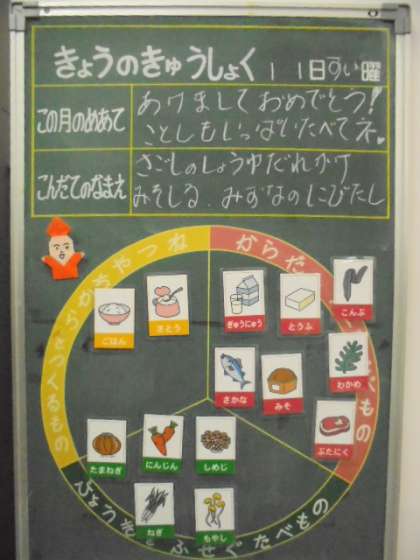 きょうのきゅうしょく 11日すい曜
この月のめあて
あけましておめでとう!
ことしもいっぱいたべてネ
こんだてのなまえ
さごしのしょうゆだれかけ
みそしる みずなのにびたし
ちからやねつ
をつくるもの
からだ
べもの
びょうきをふせぐたべもの
ごはん
さとう
ぎゅうにゅう
とうふ
こんぶ
さかな
みそ
わかめ
ぶたにく
たまねぎ
にんじん
しめじ
ねぎ
もやし